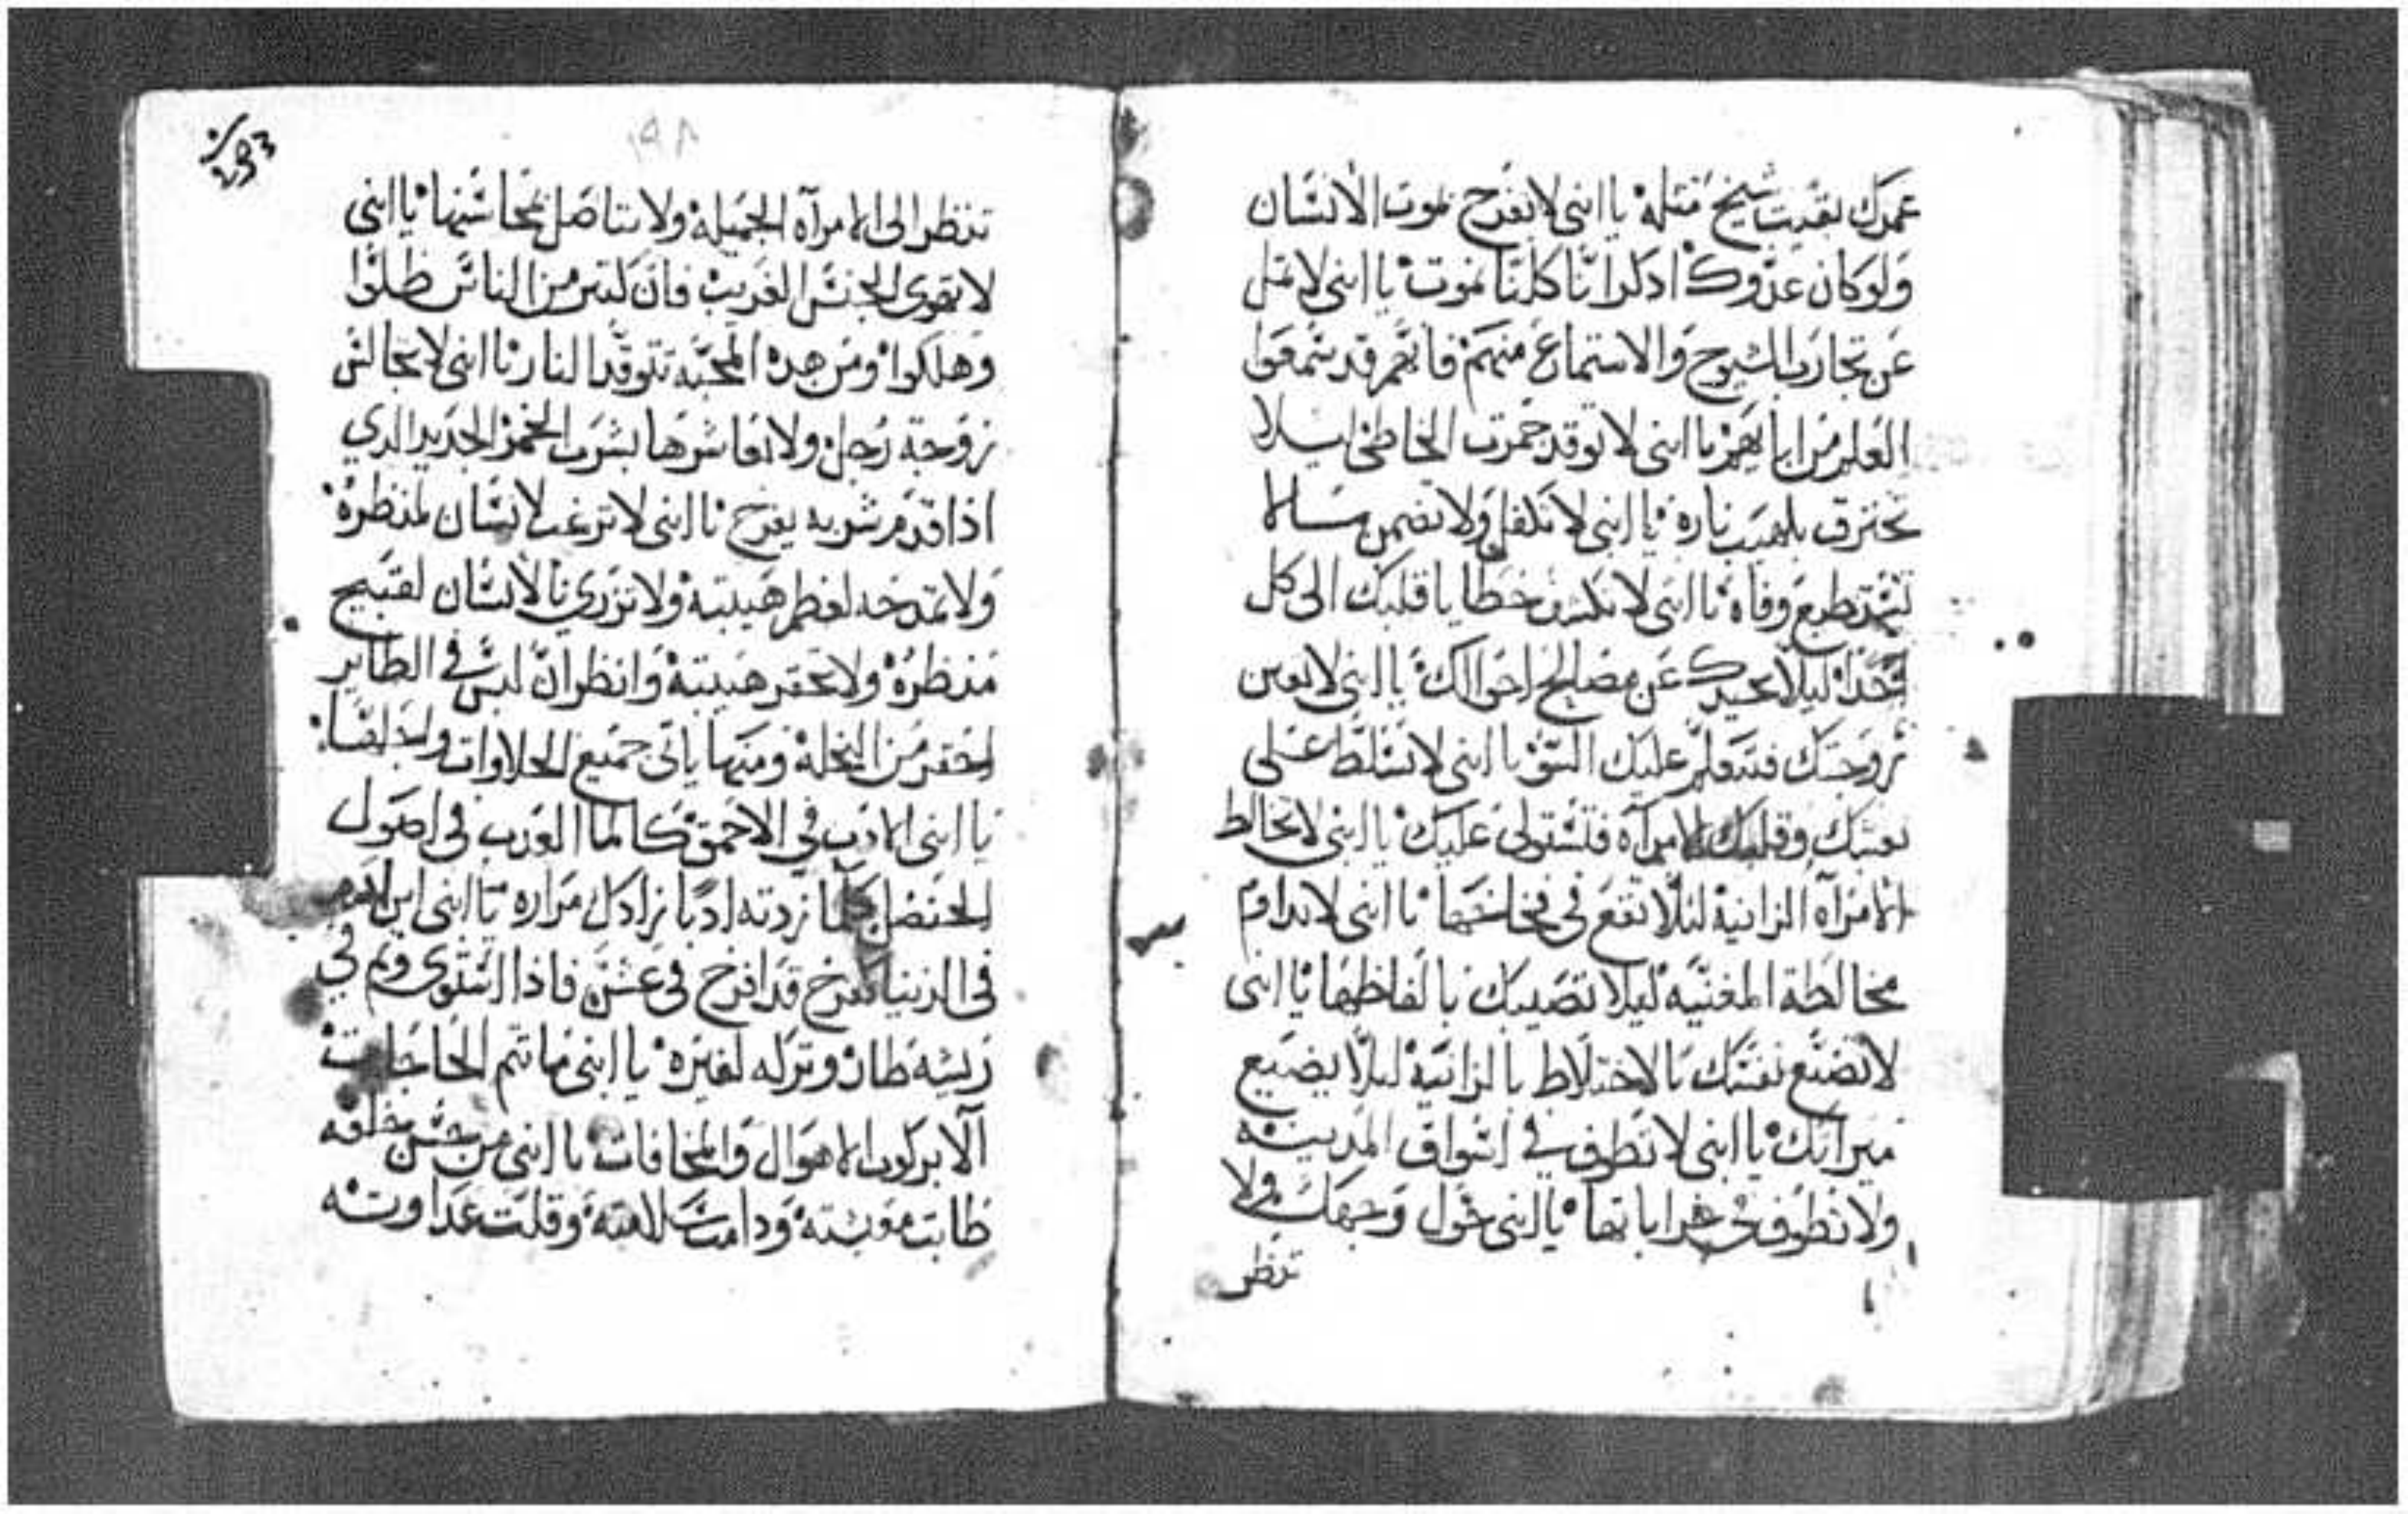 عمرك بقيت شيخ مثله يا ابني لا تفرح بموت الانسان
ولو كان عدوك اذكر اننا كلنا نموت يا ابني لا تمل
عن تجارب الشيوخ والاستماع منهم فانهم قد سمعوا
العلم من ابايهم يا ابني لا توقد جمرت الخاطي ليلا
تحترق بلهيب ناره يا ابني لا تكفل ولا تضمن ما لا
تستطيع وفاه يا ابني لا تكشف خطايا قلبك الى كل
احد ليلا يحيدك عن مصالح احوالك يا ابني لا تعين
زوجتك فتتعلم عليك السو يا ابني لا تسلط على
نفسك وقلبك الامرآه فتستولى عليك يا ابني لا تخالط
الامرآه الزانية لئلا تقع في فخاخها يا ابني لا تداوم
مخالطة المغنيه ليلا تصيبك بالفاظها يا ابني
لا تضيع نفسك بالاختلاط بالزانية ليلا يضيع
ميراثك يا ابني لا تطوف في اسواق المدينه
ولا تطوف في خراباتها يا ابني حول وجهك ولا
تنظر
293
تنظر الى الامرآه الجميلة ولا تتاصل بمحاسنها يا ابني
لا تهوى الجنس الغريب فان كثير من الناس ضلوا
وهلكوا ومن هذه المحبه تتوقد النار يا ابني لا تجالس
زوجة رجل ولا تعاشرها بشرب الخمر الجديد الذي
اذا قدم شربه يفرح يا ابني لا ترغب لانسان لمنظره
ولا تمدحه لعظم هيبته ولا تزري بالانسان لقبيح
منظره ولا تحتقر هيبته وانظر ان ليس في الطاير
احقر من النحلة ومنها ياتي جميع الحلاوات
يا ابني الادب في الاحمق كالماا العذب في اصول
الحنضل كلما زدته ادبا زادك مراره يا ابني ابن ادم
في الدنيا كفرخ قد افرخ في عشه فاذا استوى وتم في
ريشه طار وتركه لغيره يا ابني ما تتم الحاجات
آلا بركوب الاهوال والمخافات يا ابني من حسن خلقه
طابت معيشته ودامت سلامته وقلت عداوته